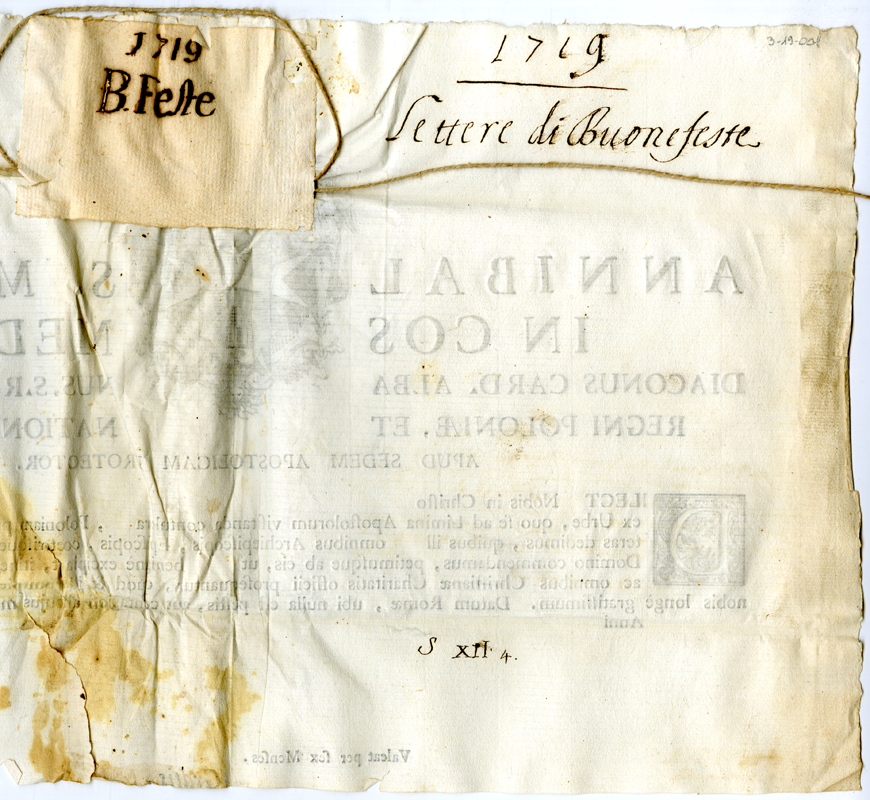 1719
B. Feste
1719
Lettere di Buonefeste
ANNIBAL S. M
IN COS MED
DIACONUS CARD. ALBA NUS. S.R
REGNI POLONIÆ, ET NATION
APUD SEDEM APOSTOLICAM PROTECTOR.
DILECT Nobis in Christo
ex Urbe, quo se ad Limina Apostolorum visitanda contulera , Poloniam
teras dedimus, quibus ill omnibus Archiepiscopis, Episcopis,
Domino commendamus, petimusque ab eis, ut benigne
ac omnibus Christianæ Charitatis officii prosequantur, quod &
nobis longè gratissimum. Datum Romæ, ubi nulla
Anni
S XII 4.
Valeat per sex Menses.